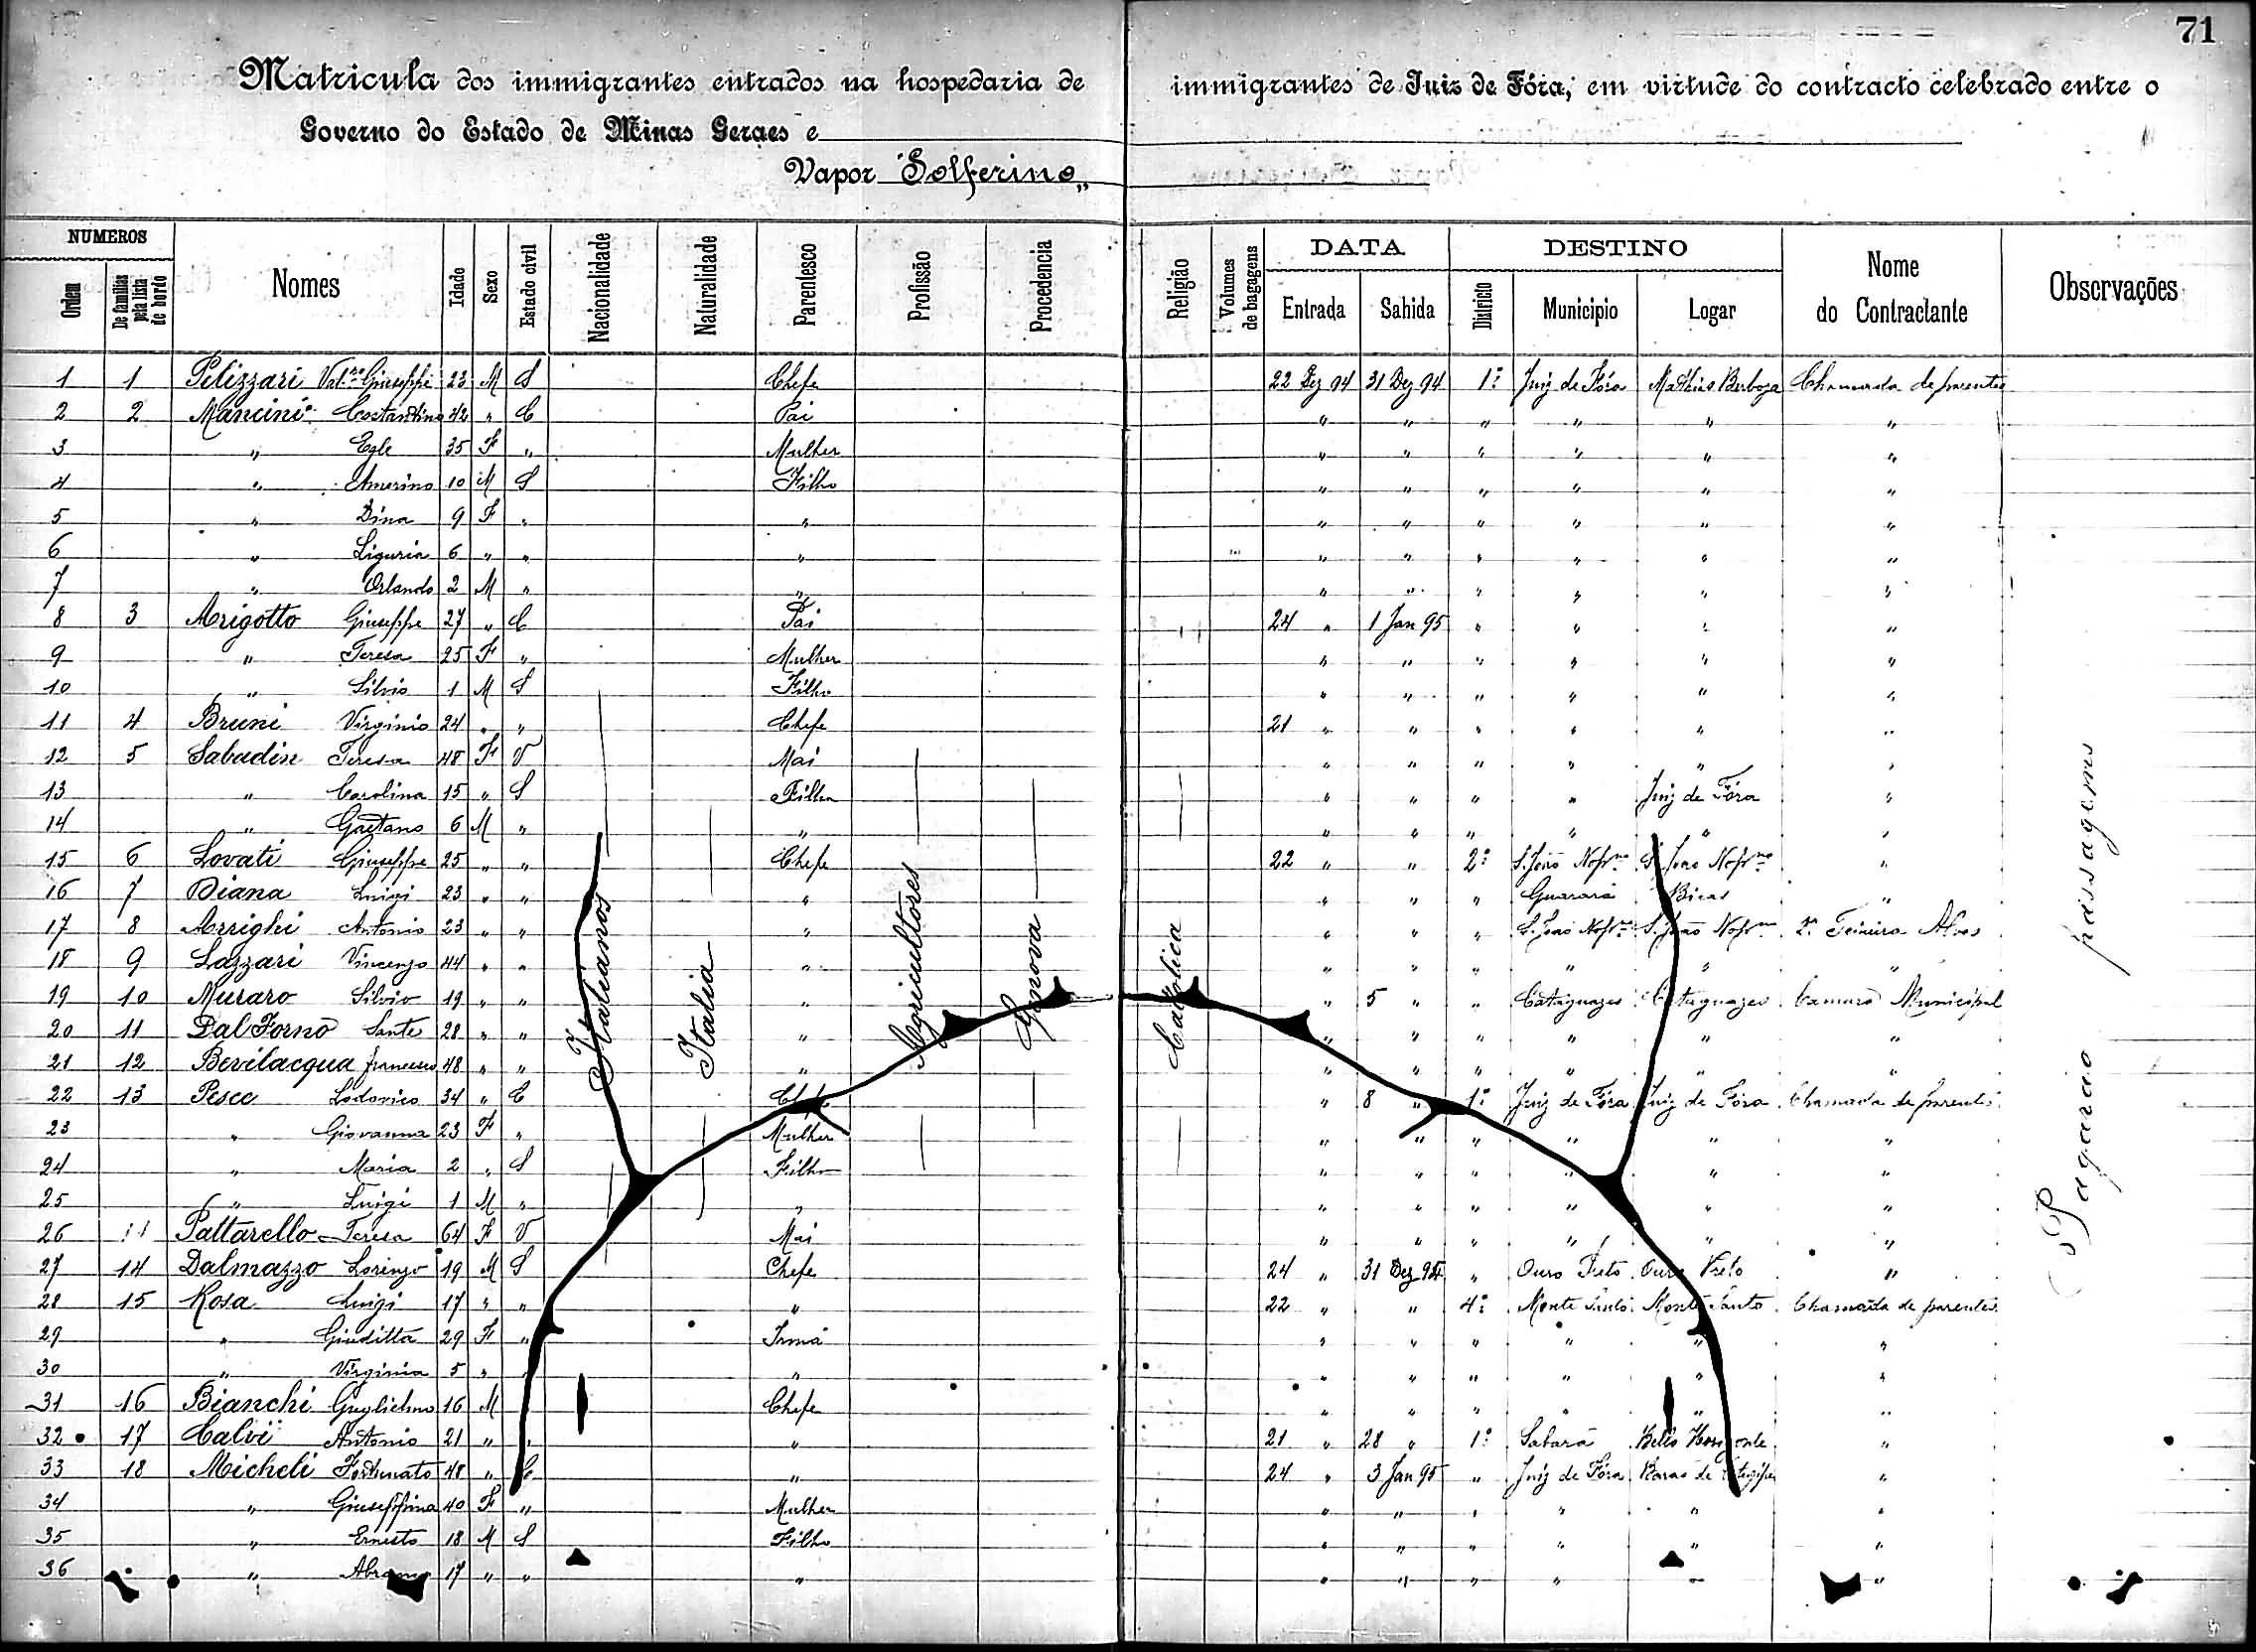 71
Matricula dos immigrantes entrados na hospedaria de immigrantes de Juiz de Fóra, em virtude do contracto celebrado entre o
Governo do Estado de Minas Geraes e
Vapor "Solferino"
NUMEROS DATA DESTINO
Ordem De familias pela lista de bordo Nomes Idade Sexo Estado civil Nacionalidade Naturalidade Parentesco Profissão Procedencia Religião Volumes de bagagens Entrada Sahida Districto Municipio Logar Nome do Contractante Observações
1 1 Pelizzari Giuseppe 23 M S Chefe 22 Dez 94 31 Dez 94 1º Juiz de Fóra Mathias Barboza Chamada de parentes
2 2 Mancini Costantino 42 " C Pai " " " " " "
3 " Egle 35 F " Mulher " " " " " "
4 " Amerino 10 M S Filho " " " " " "
5 " Dina 9 F " " " " " " " "
6 " Liguria 6 " " " " " " " " "
7 " Orlando 2 M " " " " " " " "
8 3 Arigotto Giuseppe 27 " C Pai 24 " 1 Jan 95 " " " "
9 " Teresa 25 F " Mulher " " " " " "
10 " Silvio 1 M S Filho " " " " " "
11 4 Bruni Virginio 24 " " Chefe 21 " " " " " "
12 5 Sabadin Teresa 48 F V Mai " " " " " "
13 " Carolina 15 " S Filha " " " " Juiz de Fóra "
14 " Gaetano 6 M " " " " " " " "
15 6 Lovati Giuseppe 25 " " Chefe 22 " " 2º S. João Nepno S. João Nepno "
16 7 Diana Luigi 23 " " " " " " Guarará Bicas "
17 8 Arrighi Antonio 23 " " " " " " S. João Nepno S. João Nepno Teixeira Alves
18 9 Lazzari Vincenzo 44 " " " " " " " " "
19 10 Muraro Silvio 19 " " " " 5 " " Cataguazes Cataguazes Camara Municipal
20 11 Dal Forno Sante 28 " " " " " " " " "
21 12 Bevilacqua Francesco 48 " " " " " " " " "
22 13 Pesce Lodovico 34 " C Chefe " 8 " 1º Juiz de Fóra Juiz de Fóra Chamada de parentes
23 " Giovanna 23 F " Mulher " " " " " "
24 " Maria 2 " S Filho " " " " " "
25 " Luigi 1 M " " " " " " " "
26 " Pattarello Teresa 64 F V Mai " " " " " "
27 14 Dalmazzo Lorenzo 19 M S Chefe 24 " 31 Dez 94 " Ouro Preto Ouro Preto "
28 15 Rosa Luigi 17 " " " 22 " " 4º Monte Santo Monte Santo Chamada de parentes
29 " Giuditta 29 F " Irmã " " " " " "
30 " Virginia 5 " " " " " " " "
31 16 Bianchi Guglielmo 16 M Chefe " " " " " "
32 17 Calvi Antonio 21 " " " 21 " 28 " 1º Sabará Bello Horizonte "
33 18 Micheli Fortunato 48 " C " 24 " 3 Jan 95 " Juiz de Fóra "
34 " Giuseppina 40 F " Mulher " " " " " "
35 " Ernesto 18 M S Filho " " " " " "
36 " Abramo 17 " " " " " " " " "
Italianos
Italia
Agricultores
Genova
Catholica
Pagarão passagens